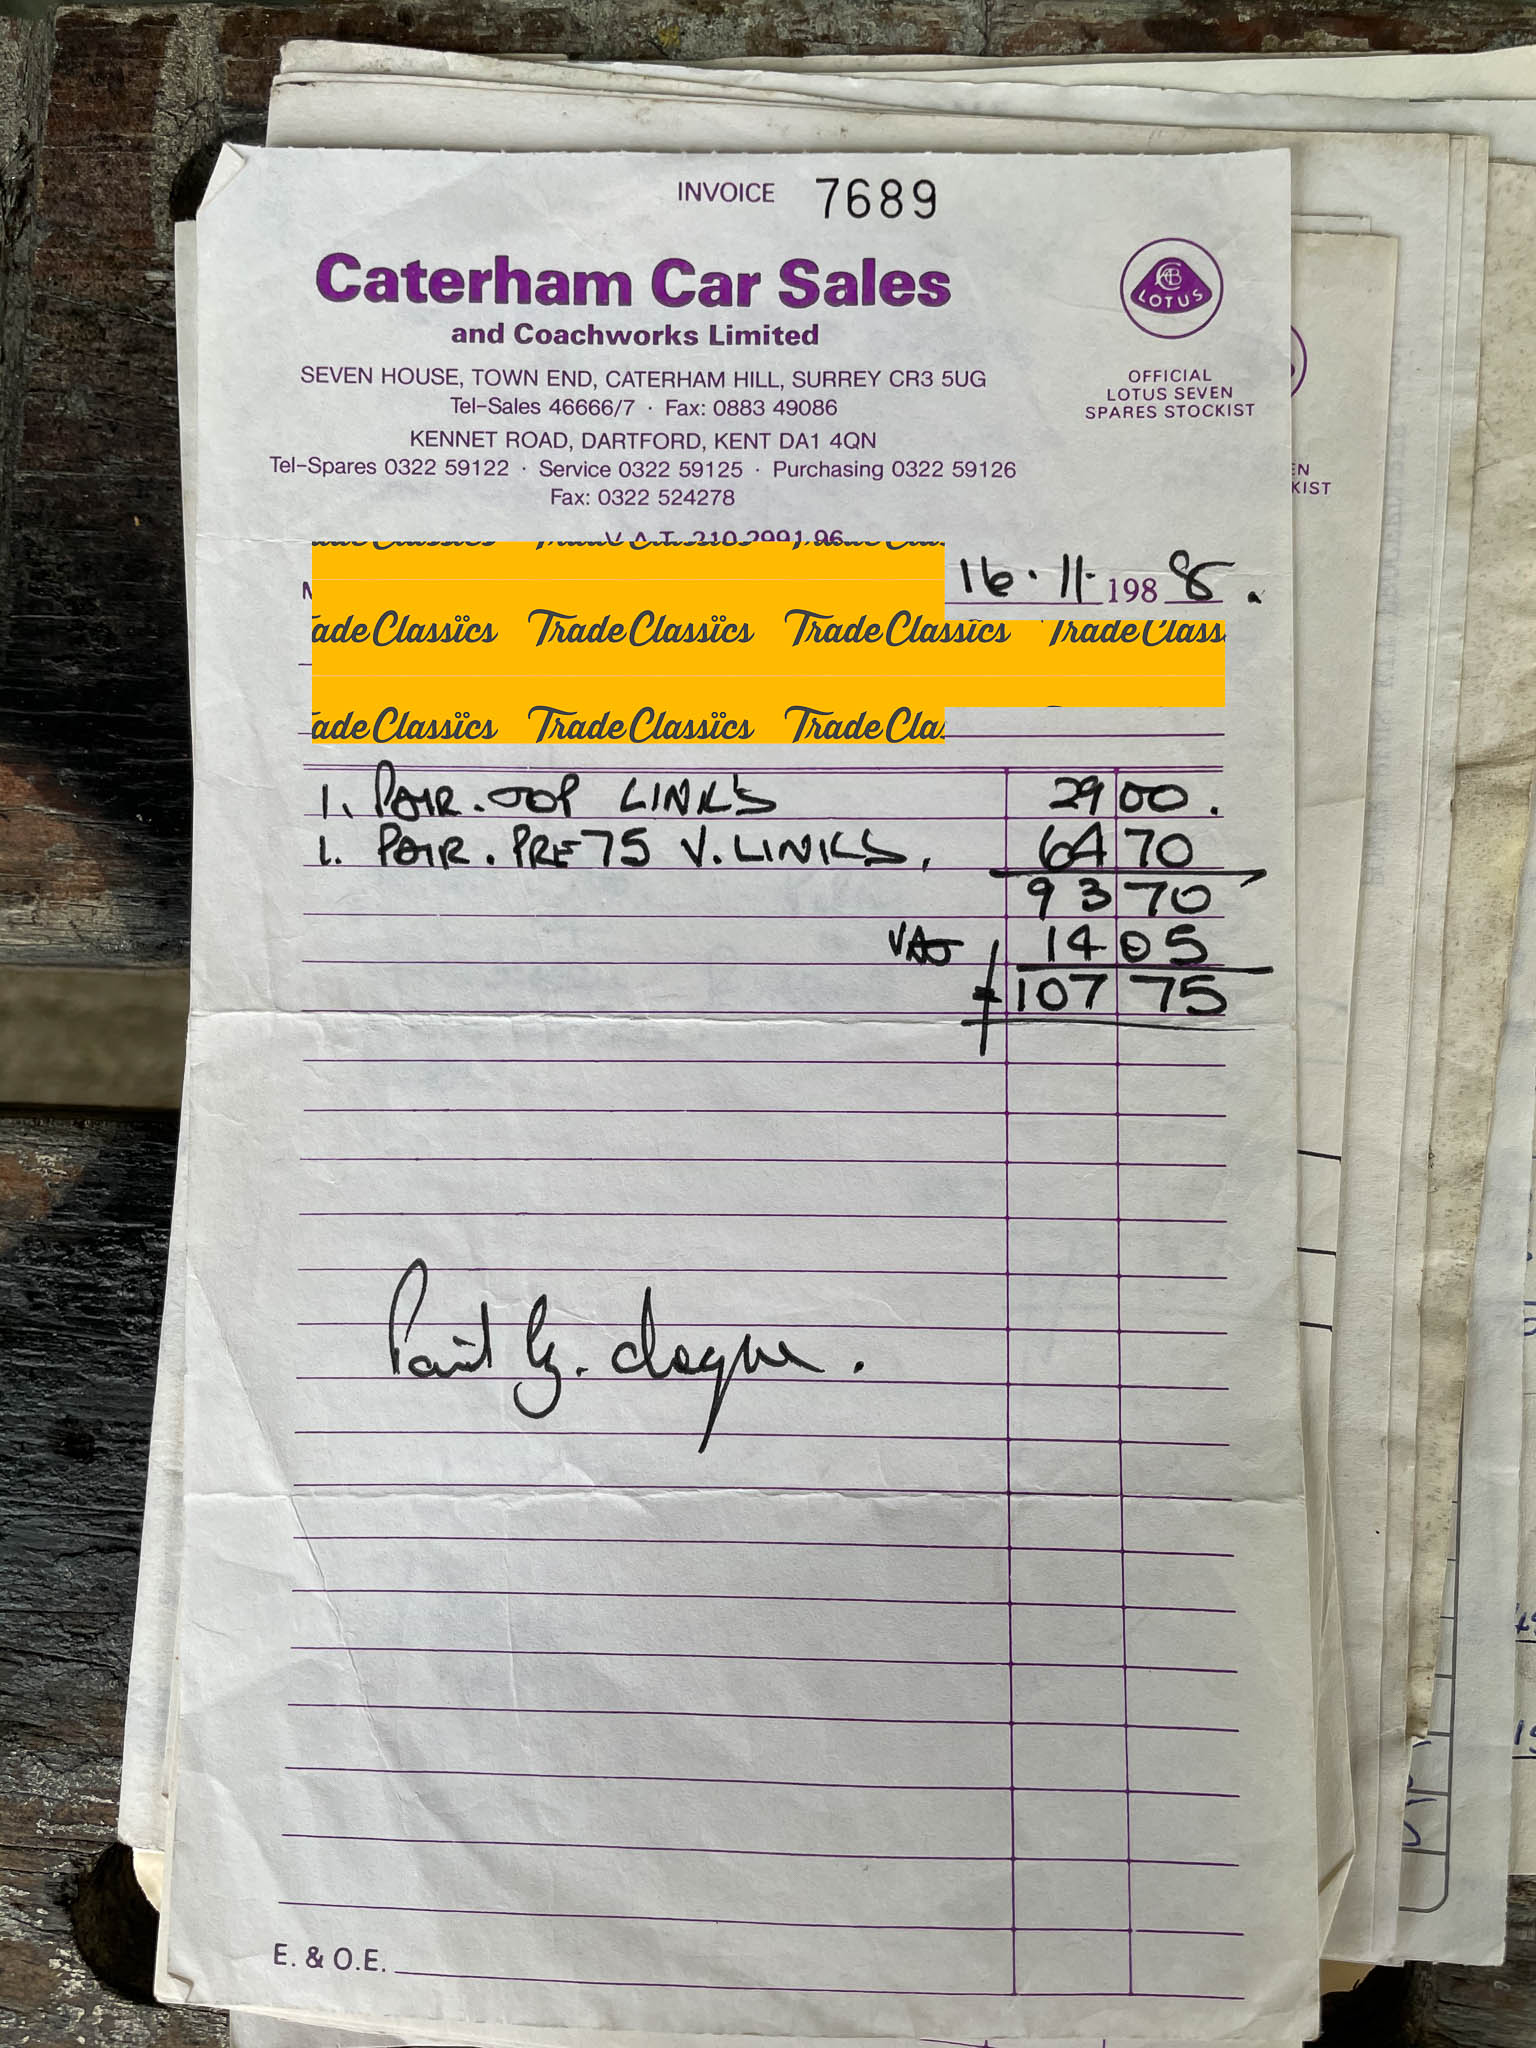 INVOICE 7689
Caterham Car Sales
and Coachworks Limited
LOTUS
OFFICIAL
LOTUS SEVEN
SPARES STOCKIST
SEVEN HOUSE, TOWN END, CATERHAM HILL, SURREY CR3 5UG
Tel-Sales 46666/7 · Fax: 0883 49086
KENNET ROAD, DARTFORD, KENT DA1 4QN
Tel-Spares 0322 59122 · Service 0322 59125 · Purchasing 0322 59126
Fax: 0322 524278
V.A.T. 210 2991 96
16.11. 1988.
ade Classïcs Trade Classïcs Trade Classïcs Trade Class
ade Classïcs Trade Classïcs Trade Clas
1. PAIR. TOP LINKS 29 00.
1. PAIR. PRE 75 V. LINKS. 64 70
93 70
VAT 14 05
107 75
Paid by. cheque.
E. & O.E.
EN
KIST